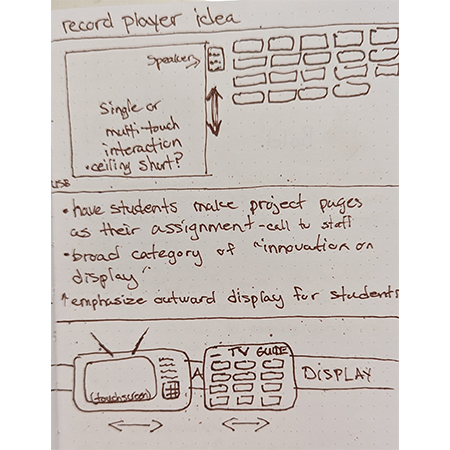 record player idea
Speaker
Single or
multi-touch
interaction
• ceiling short?
USB
• have students make project pages
as their assignment - call to staff
• broad category of "innovation on
display"
↑ emphasize outward display for students
TV GUIDE
(touchscreen)
A
DISPLAY